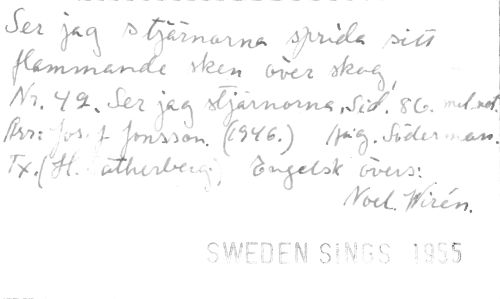 Ser jag stjärnorna sprida sitt
flammande sken över skog,
Nr. 42. Ser jag stjärnorna, Sid. 86. mel. not.
Arr: Josef Jonsson. (1946.) Aug. Söderman.
Tx. (H. Sätherberg), Engelsk övers:
Noel Wirén.
SWEDEN SINGS 1955